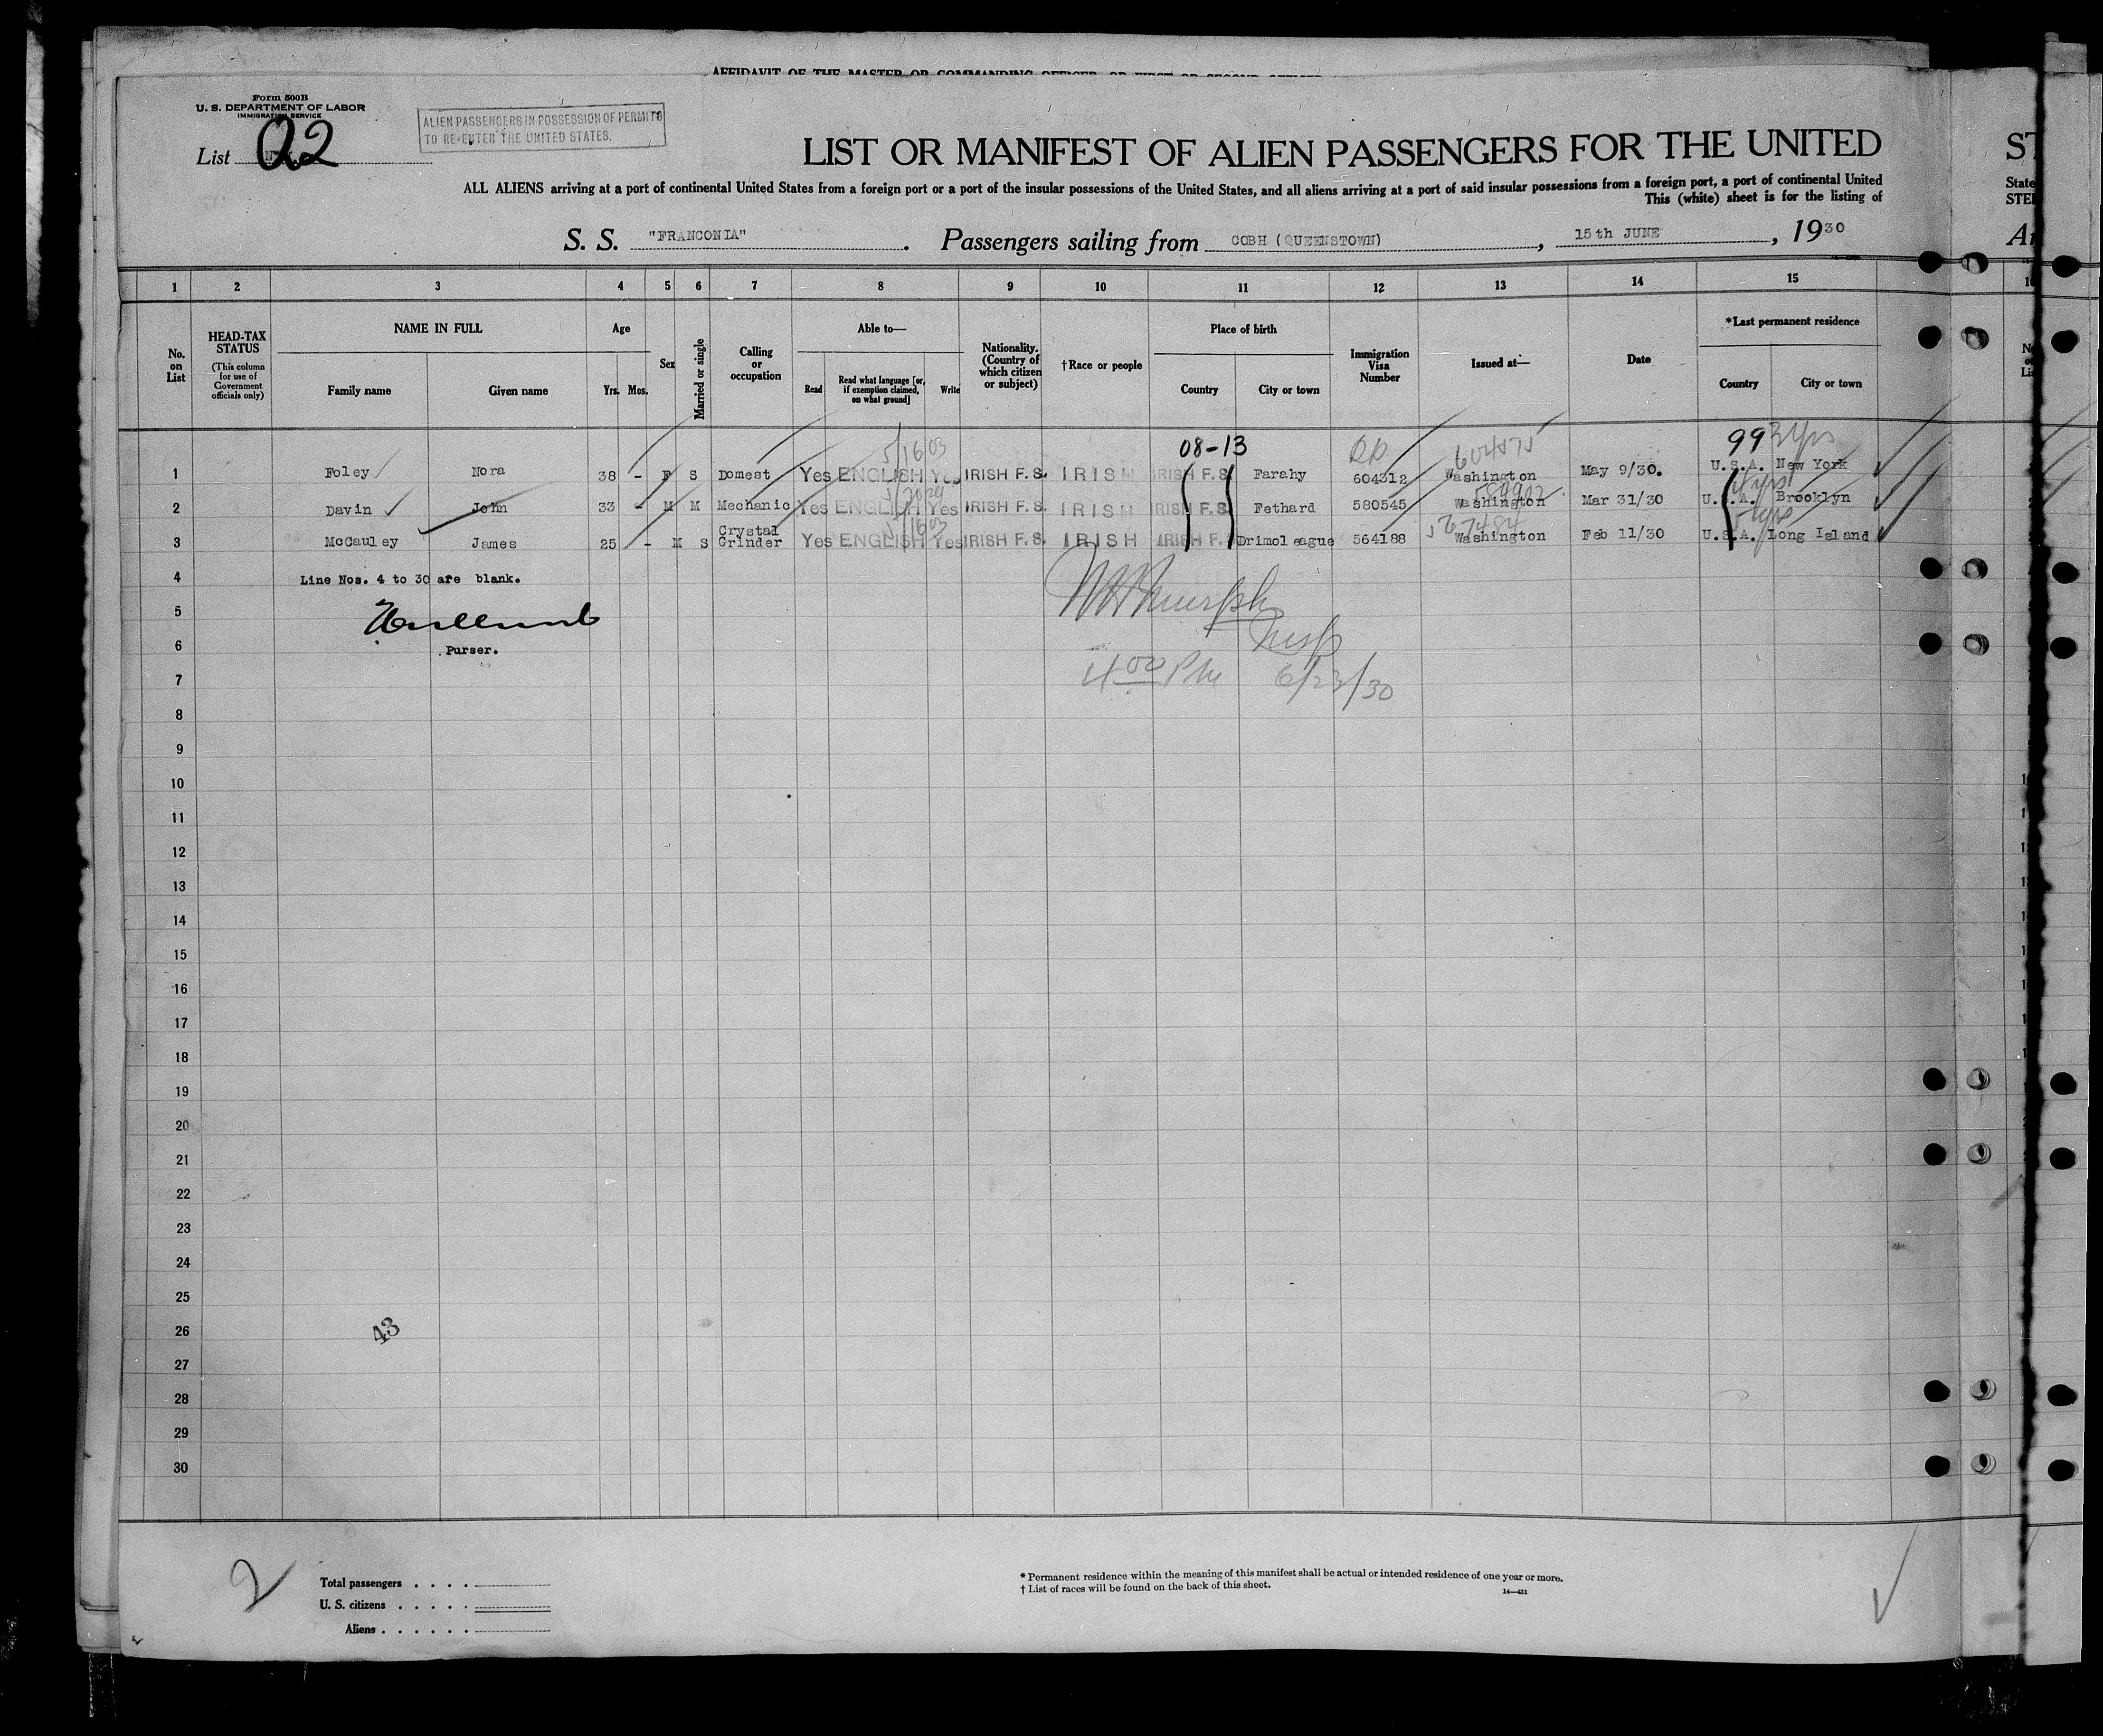 AFFIDAVIT OF THE MASTER OR COMMANDING OFFICER, OR FIRST OR SECOND OFFICER
Form 500B
U. S. DEPARTMENT OF LABOR
IMMIGRATION SERVICE
List 22
ALIEN PASSENGERS IN POSSESSION OF PERMITS
TO RE-ENTER THE UNITED STATES.
LIST OR MANIFEST OF ALIEN PASSENGERS FOR THE UNITED
ALL ALIENS arriving at a port of continental United States from a foreign port or a port of the insular possessions of the United States, and all aliens arriving at a port of said insular possessions from a foreign port, a port of continental United
This (white) sheet is for the listing of
S. S. "FRANCONIA". Passengers sailing from COBH (QUEENSTOWN), 15th JUNE, 1930
ST
State
STE
1 2 3 4 5 6 7 8 9 10 11 12 13 14 15
No. on List
HEAD-TAX STATUS (This column for use of Government officials only)
NAME IN FULL
Family name Given name
Age
Yrs. Mos.
Sex
Married or single
Calling or occupation
Able to—
Read Read what language [or, if exemption claimed, on what ground] Write
Nationality. (Country of which citizen or subject)
†Race or people
Place of birth
Country City or town
Immigration Visa Number
Issued at—
Date
*Last permanent residence
Country City or town
5/16/03 08-13 99 3 yrs
1 Foley Nora 38 - F S Domest Yes ENGLISH Yes IRISH F.S. IRISH IRISH F.S. Farahy 604312 Washington May 9/30. U.S.A. New York
2 Davin John 33 - M M Mechanic Yes ENGLISH Yes IRISH F.S. IRISH IRISH F.S. Fethard 580545 Washington Mar 31/30 U.S.A. Brooklyn
3 McCauley James 25 - M S Crystal Grinder Yes ENGLISH Yes IRISH F.S. IRISH IRISH F. Drimoleague 564188 Washington Feb 11/30 U.S.A. Long Island
4 Line Nos. 4 to 30 are blank.
5
6 Purser.
7 4 00 PM 6/23/30
8
9
10
11
12
13
14
15
16
17
18
19
20
21
22
23
24
25
26 43
27
28
29
30
2
Total passengers . . . .
U. S. citizens . . . . .
Aliens . . . . . .
* Permanent residence within the meaning of this manifest shall be actual or intended residence of one year or more.
† List of races will be found on the back of this sheet.
14—431